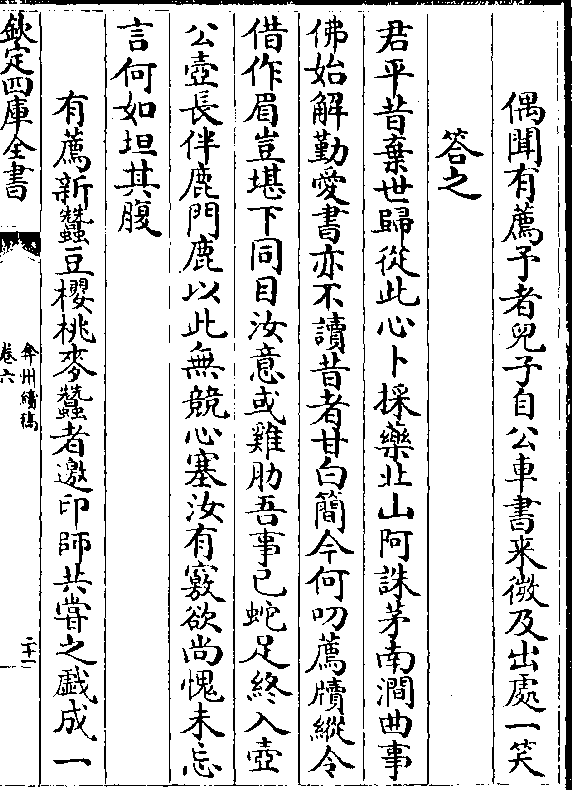 偶聞有薦予者兒子自公車書来徵及出處一笑
答之
君平昔棄世歸從此心卜採藥北山阿誅茅南澗曲事
佛始解勤愛書亦不讀昔者甘白簡今何叨薦牘縱令
借作眉豈堪下同目汝意或雞肋吾事已蛇足終入壺
公壺長伴鹿門鹿以此無競心塞汝有竅欲尚愧未忘
言何如坦其腹
有薦新蠶豆櫻桃麥蠶者邀印師共嘗之戯成一
欽定四庫全書
弇州續稿
卷六
二十一